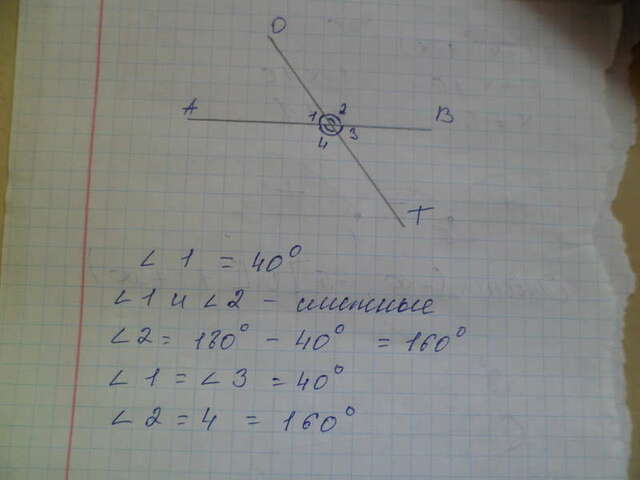 O
A 1 2 B
4 3
T
∠ 1 = 40°
∠1 и ∠2 - смежные
∠2 = 180° - 40° = 160°
∠ 1 = ∠ 3 = 40°
∠ 2 = 4 = 160°